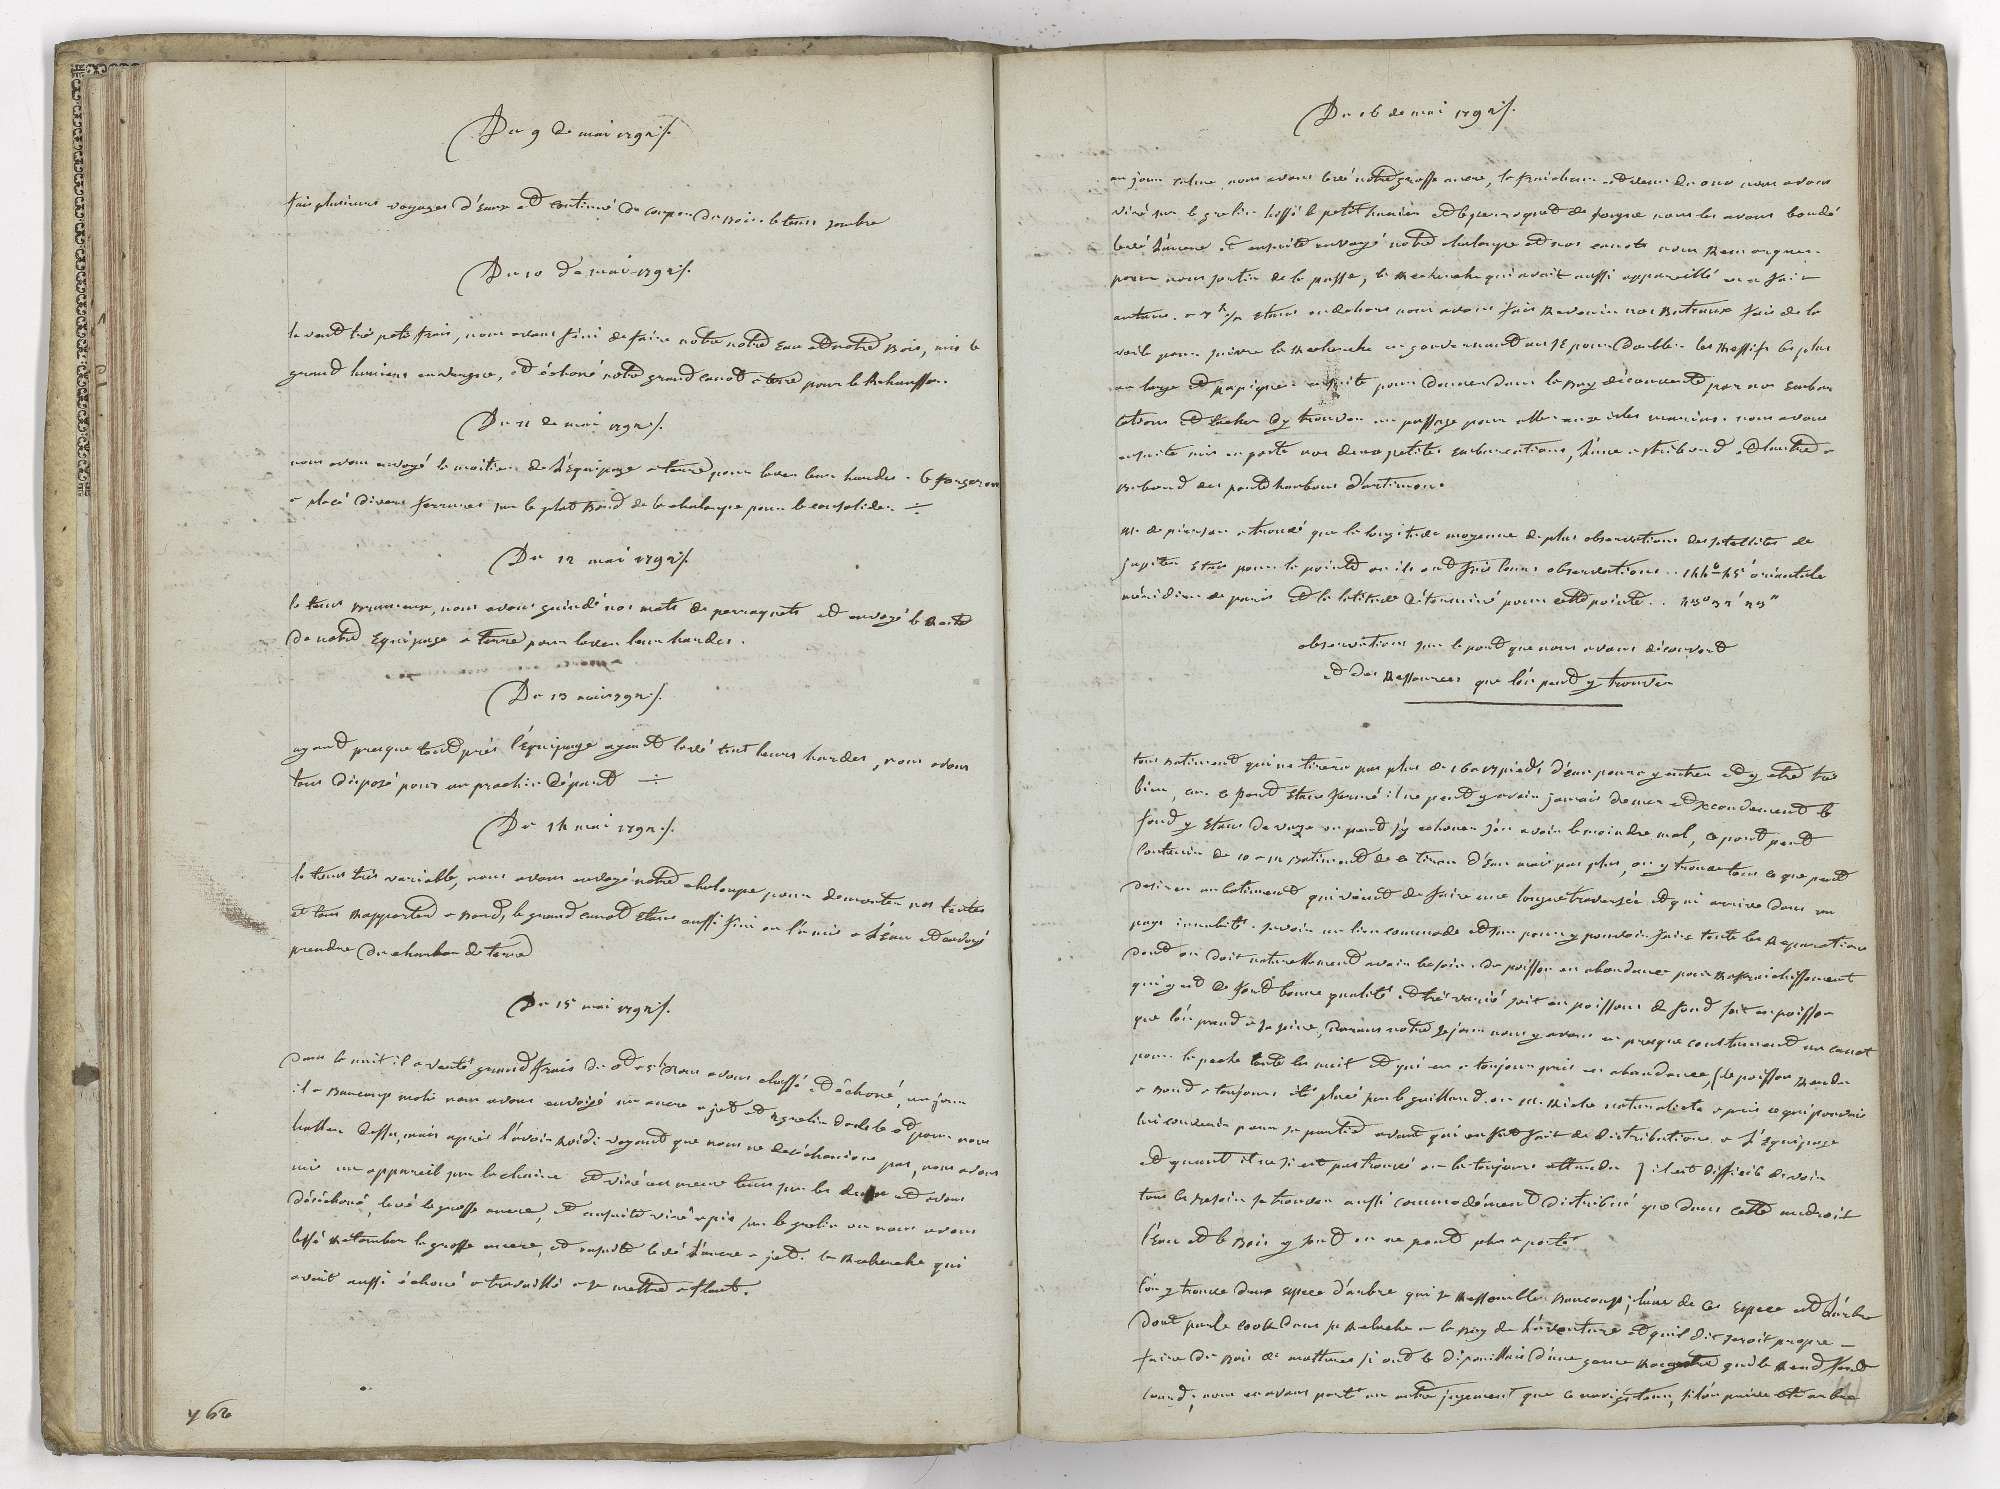 Du 9 de mai 1792./.
fais plusieurs voyages d'Eaux et continué de couper du Bois. le tems sombre
Du 10 de mai 1792./.
le vent très petit frais, nous avons fini de faire notre notre Eau et notre Bois, mis le
grand huniers envergue, et échoué notre grand canot a terre pour le Rchauffer.
Du 11 de mai 1792./.
nous avons envoyé la moitier de l'Equipage a terre pour laver leur hardes. le forgeron
a placé divers ferrures sur le plat Bord de la chaloupe pour le consolider. ÷
Du 12 mai 1792./.
le tems Brumeux, nous avons guindé nos mats de perroquets et envoyé le Reste
de notre Equipage a terre pour laver leur hardes.
Du 13 mai 1792./.
ayant presque tout près l'Equipage ayant lavé tout leurs hardes, nous avons
tous disposé pour un prochin départ ÷
Du 14 mai 1792./.
le tems très variable, nous avons envoyé notre chaloupe pour demonter nos tentes
et tous Rapporter a Bord, le grand canot Etans aussi fini on l'a mis a l'Eau et envoyé
prendre du charbon de terre
Du 15 mai 1792./.
dans la nuit il a venté grand frais de O a 5h nous avons chassé et échoué, au jour
il a Beaucoup moli nous avons envoyé une ancre a jet et grelin dessus le O pour nous
haller dessu, mais après l'avoir Roidi voyant que nous ne deséchouions pas, nous avons
mis un appareil sur la chaine et viré en meme tems sur les deux et avons
déséchoué, levé la grosse ancre, et ensuite viré a pic sur le grelin ou nous avons
lessé Retomber la grosse ancre, et ensuite levé l'ancre a jet. la Recherche qui
avait aussi échoué a travaillé a se mettre a flaut.
762
Du 16 de mai 1792./.
au jour calme, nous avons levé notre grosse ancre, la fraicheur est venu de ono nous avons
viré sur le grelin hissé le petit hunier et le perroquet de fougue nous les avons bordé
levé l'ancre et ensuite envoyé notre chaloupe et nos canots nous Remorquer
pour nous sortir de la passe, la Recherche qui avait aussi appareillé en a fait
autans. a 7h 1/2 Etans en dehors nous avons fais Revenir nos Bateaux fais de la
voile pour suivre la Recherche en gouvernant au SE pour doubler les Ressifs les plus
au large et rapiquer ensuite pour donner dans la Bay découverte par nos Embar
cations et tacher d'y trouver un passage pour aller aux isles maries. nous avons
ensuite mis en porte nos deux petites Embarcations, l'une a stribord et l'autre a
Babord des porte haubans d'artimon.
Mr de pierson a trouvé que la longitude moyenne de plus observations des satellites de
jupiter Etais pour la pointe ou ils ont fais leurs observations .. 144° 45' orientale
méridien de paris et la latitude déterminé pour cette pointe .. 43° 32' 23"
observations sur le port que nous avons découvert
et des Ressources que l'on peut y trouver
tous Batiment qui ne tirera pas plus de 16 a 17 pieds d'Eau pourra y entrer et y etre très
bien, car ce port Etans fermé il ne peut y avoir jamais de mer et secondement le
fond y Etans de vaze on peut s'y echouer sen avoir le moindre mal, ce port peut
Contenir de 10 a 12 Batiment de ce tiran d'Eau mais pas plus, on y trouve tous ce que peut
desirer un batiment qui vient de faire une longue traversée et qui arrive dans un
pays inhabité. savoir un lieu commode et sur pour y pouvoir faire toute les Reparations
dont on doit naturellement avoir besoin. du poisson en abondance pour Rafraichissement
qui y est de fort bonne qualité et très varié soit en poissons de fond soit en poisson
que l'on prend a la seine, Durans notre sejour nous y avons eu presque constament un canot
pour la peche toute les nuit et qui en a toujour pris en abondance, (le poisson Rendu
a Bord a toujours été placé sur le gaillard. ou Mr. Riche naturaliste a pris ce qui pouvais
lui convenir pour sa partie avant qui en fut fait de distributions a l'Equipage
et quant il ne si est pas trouvé on la toujours attendu) il est difficile de voir
tous les besoin se trouver aussi commodément distribué que dans cette endroit
l'Eau et le Bois y sont on ne peut plus a porté
l'on y trouve deux espece d'arbre qui se Ressemble Beaucoup; l'une de ces espece est l'arbre
dont parle cook dans sa Relache a la Bay de l'aventure et quil dit seroit propre a
faire du Bois de mattures si ont le dépouillais d'une gome qui le Rend fort
lourd; nous en avons porté un autre jugement que ce navigateur,